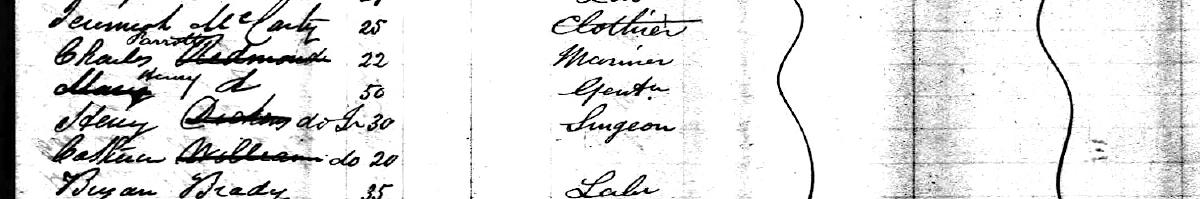 Jeremiah McCarty 25 Clothier
Parrott
Charles Redmond 22 Mariner
Henry
Mary d 50 Gentn
Henry do Jr 30 Surgeon
William do 20
Bryan Brady 35 Labr